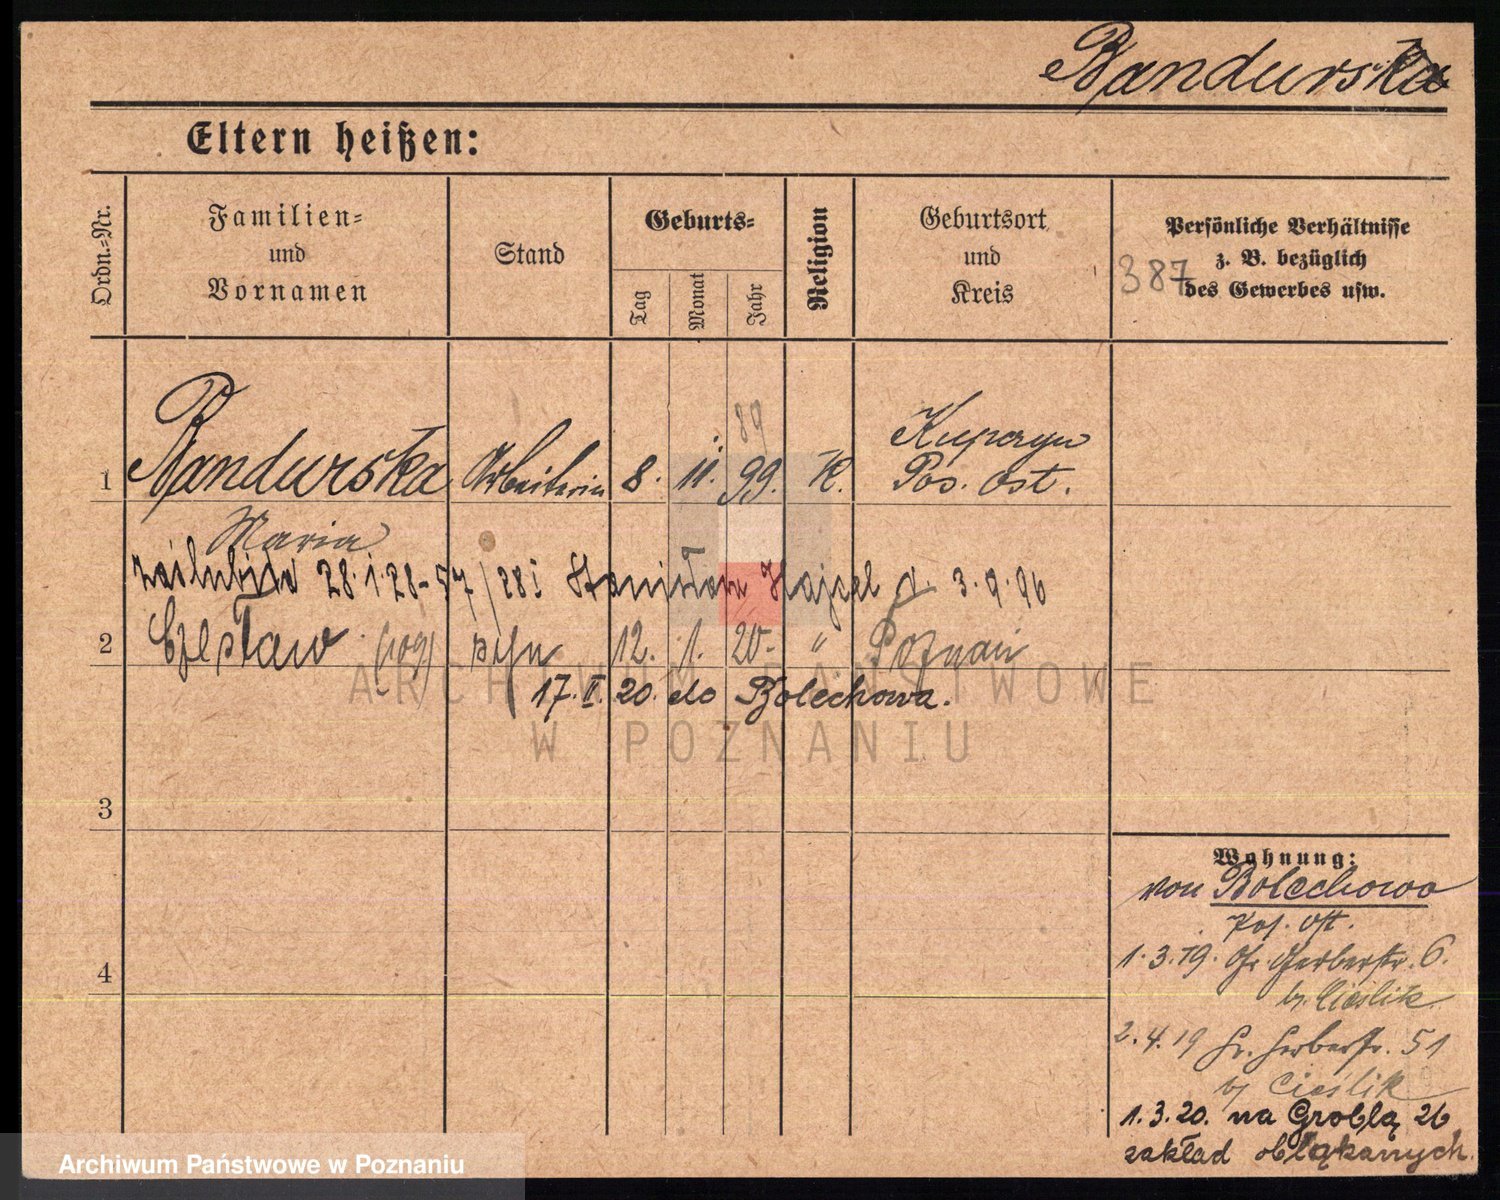 Bandurska
Eltern heißen:
Ordn.=Nr.
Familien=
und
Vornamen
Stand
Geburts=
Tag
Monat
Jahr
Religion
Geburtsort
und
Kreis
Persönliche Verhältnisse
z. B. bezüglich
des Gewerbes usw.
387
89
1 Bandurska Arbeiterin 8. 11. 99. K.
Pos. Ost.
Maria
28.1.28 - Stanisław d. 3.9.96
2 Czesław syn 12. 1. 20. " Poznań
17.II.20. do Bolechowa.
3
4
Wohnung:
von Bolechowo
Pos. Ost.
1.3.19. Gr. Gerberstr. 6.
b. Cieślik
2.4.19 Gr. Gerberstr. 51
b Cieślik
1.3.20. na Groblą 26
zakład obłąkanych.
ARCHIWUM PAŃSTWOWE
W POZNANIU
Archiwum Państwowe w Poznaniu